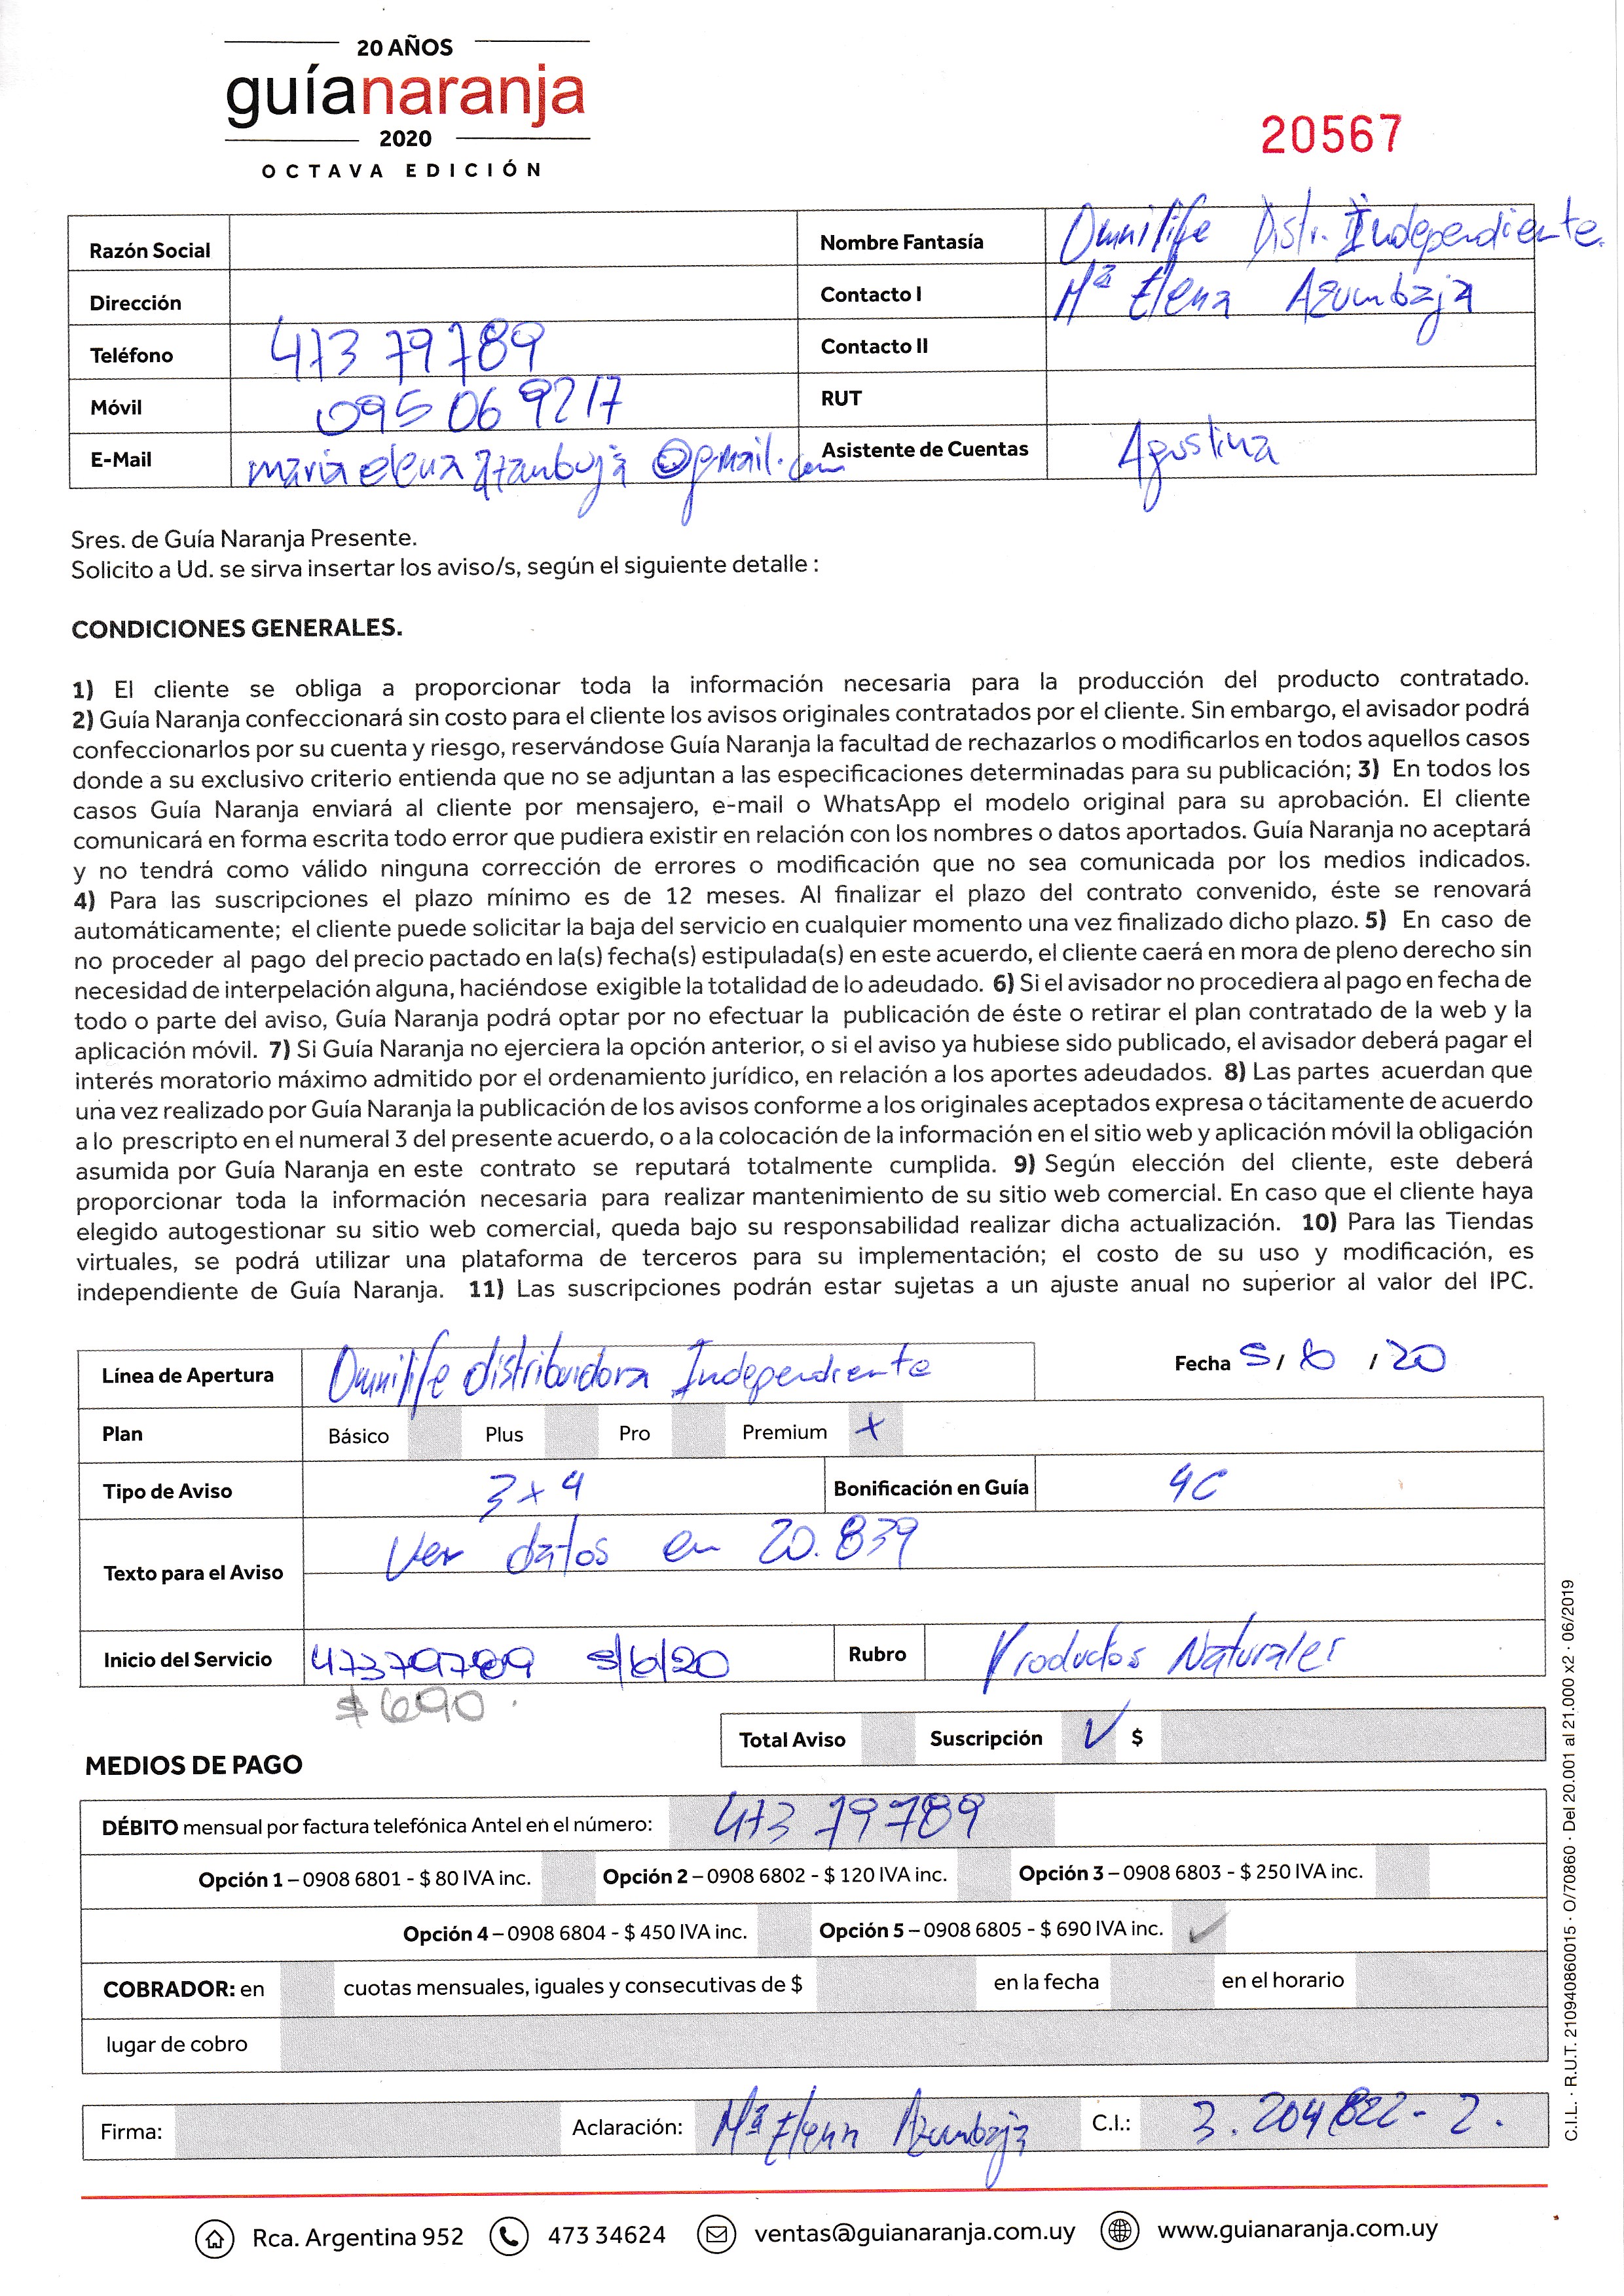 20 AÑOS
guíanaranja
2020
OCTAVA EDICIÓN
20567
Razón Social
Nombre Fantasía Omnilife Distr. Independiente.
Dirección
Contacto I Mª Elena Azumbaja
Teléfono 473 79789
Contacto II
Móvil 095 069217
RUT
E-Mail mariaelenaazambuja@gmail.com
Asistente de Cuentas Agustina
Sres. de Guía Naranja Presente.
Solicito a Ud. se sirva insertar los aviso/s, según el siguiente detalle :
CONDICIONES GENERALES.
1) El cliente se obliga a proporcionar toda la información necesaria para la producción del producto contratado.
2) Guía Naranja confeccionará sin costo para el cliente los avisos originales contratados por el cliente. Sin embargo, el avisador podrá
confeccionarlos por su cuenta y riesgo, reservándose Guía Naranja la facultad de rechazarlos o modificarlos en todos aquellos casos
donde a su exclusivo criterio entienda que no se adjuntan a las especificaciones determinadas para su publicación; 3) En todos los
casos Guía Naranja enviará al cliente por mensajero, e-mail o WhatsApp el modelo original para su aprobación. El cliente
comunicará en forma escrita todo error que pudiera existir en relación con los nombres o datos aportados. Guía Naranja no aceptará
y no tendrá como válido ninguna corrección de errores o modificación que no sea comunicada por los medios indicados.
4) Para las suscripciones el plazo mínimo es de 12 meses. Al finalizar el plazo del contrato convenido, éste se renovará
automáticamente; el cliente puede solicitar la baja del servicio en cualquier momento una vez finalizado dicho plazo. 5) En caso de
no proceder al pago del precio pactado en la(s) fecha(s) estipulada(s) en este acuerdo, el cliente caerá en mora de pleno derecho sin
necesidad de interpelación alguna, haciéndose exigible la totalidad de lo adeudado. 6) Si el avisador no procediera al pago en fecha de
todo o parte del aviso, Guía Naranja podrá optar por no efectuar la publicación de éste o retirar el plan contratado de la web y la
aplicación móvil. 7) Si Guía Naranja no ejerciera la opción anterior, o si el aviso ya hubiese sido publicado, el avisador deberá pagar el
interés moratorio máximo admitido por el ordenamiento jurídico, en relación a los aportes adeudados. 8) Las partes acuerdan que
una vez realizado por Guía Naranja la publicación de los avisos conforme a los originales aceptados expresa o tácitamente de acuerdo
a lo prescripto en el numeral 3 del presente acuerdo, o a la colocación de la información en el sitio web y aplicación móvil la obligación
asumida por Guía Naranja en este contrato se reputará totalmente cumplida. 9) Según elección del cliente, este deberá
proporcionar toda la información necesaria para realizar mantenimiento de su sitio web comercial. En caso que el cliente haya
elegido autogestionar su sitio web comercial, queda bajo su responsabilidad realizar dicha actualización. 10) Para las Tiendas
virtuales, se podrá utilizar una plataforma de terceros para su implementación; el costo de su uso y modificación, es
independiente de Guía Naranja. 11) Las suscripciones podrán estar sujetas a un ajuste anual no superior al valor del IPC.
Línea de Apertura Omnilife distribuidora Independiente
Fecha 5/6/20
Plan Básico Plus Pro Premium X
Tipo de Aviso 3x4 Bonificación en Guía 4C
Texto para el Aviso Ver datos en 20.839
Inicio del Servicio 47379789 5/6/20 Rubro Productos Naturales
$690.
Total Aviso Suscripción ✓ $
MEDIOS DE PAGO
DÉBITO mensual por factura telefónica Antel en el número: 473 79789
Opción 1 – 0908 6801 - $ 80 IVA inc. Opción 2 – 0908 6802 - $ 120 IVA inc. Opción 3 – 0908 6803 - $ 250 IVA inc.
Opción 4 – 0908 6804 - $ 450 IVA inc. Opción 5 – 0908 6805 - $ 690 IVA inc. ✓
COBRADOR: en cuotas mensuales, iguales y consecutivas de $ en la fecha en el horario
lugar de cobro
Firma: Aclaración: Mª Elena Azumbaja C.I.: 3.204822-2.
C.I.L. · R.U.T. 210940860015 · O/70860 · Del 20.001 al 21.000 x2 · 06/2019
Rca. Argentina 952 473 34624 ventas@guianaranja.com.uy www.guianaranja.com.uy